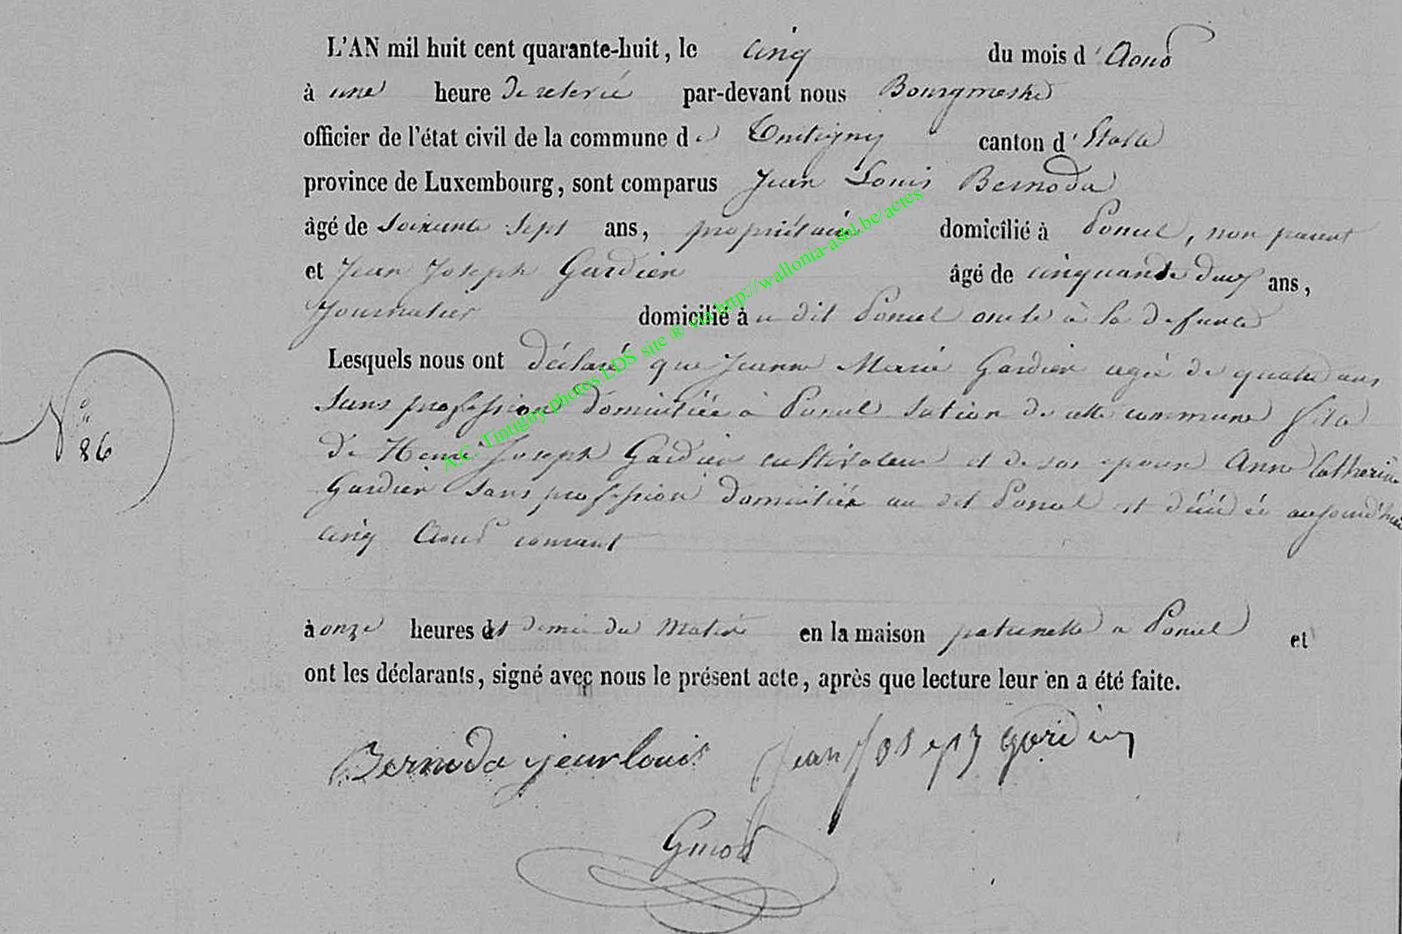 L'AN mil huit cent quarante-huit, le cinq du mois d' Aout
à une heure de relevée par-devant nous Bourgmestre
officier de l'état civil de la commune de Tintigny canton d' Etalle
province de Luxembourg, sont comparus Jean Louis Bernoda
âgé de soixante sept ans, propriétaire domicilié à Poncel, non parent
et Jean Joseph Gardier âgé de cinquante deux ans,
Journalier domicilié à u dit Poncel oncle à la defunte
Lesquels nous ont déclaré que Jeanne Marie Gardier agée de quatre ans
N° 86
sans profession domiciliée à Poncel Section de cette commune fille
de Henri Joseph Gardier cultivateur et de son epouse Anne Catherine
Gardier sans profession domiciliée au dit Poncel et décédée aujourd'hui
cinq Aout courant
à onze heures et demie du Matin en la maison paternelle a Poncel et
ont les déclarants, signé avec nous le présent acte, après que lecture leur en a été faite.
Bernoda jean louis Jean Joseph gardier
A.C. Tintigny photos LDS site ® via http://wallonia-asbl.be/actes